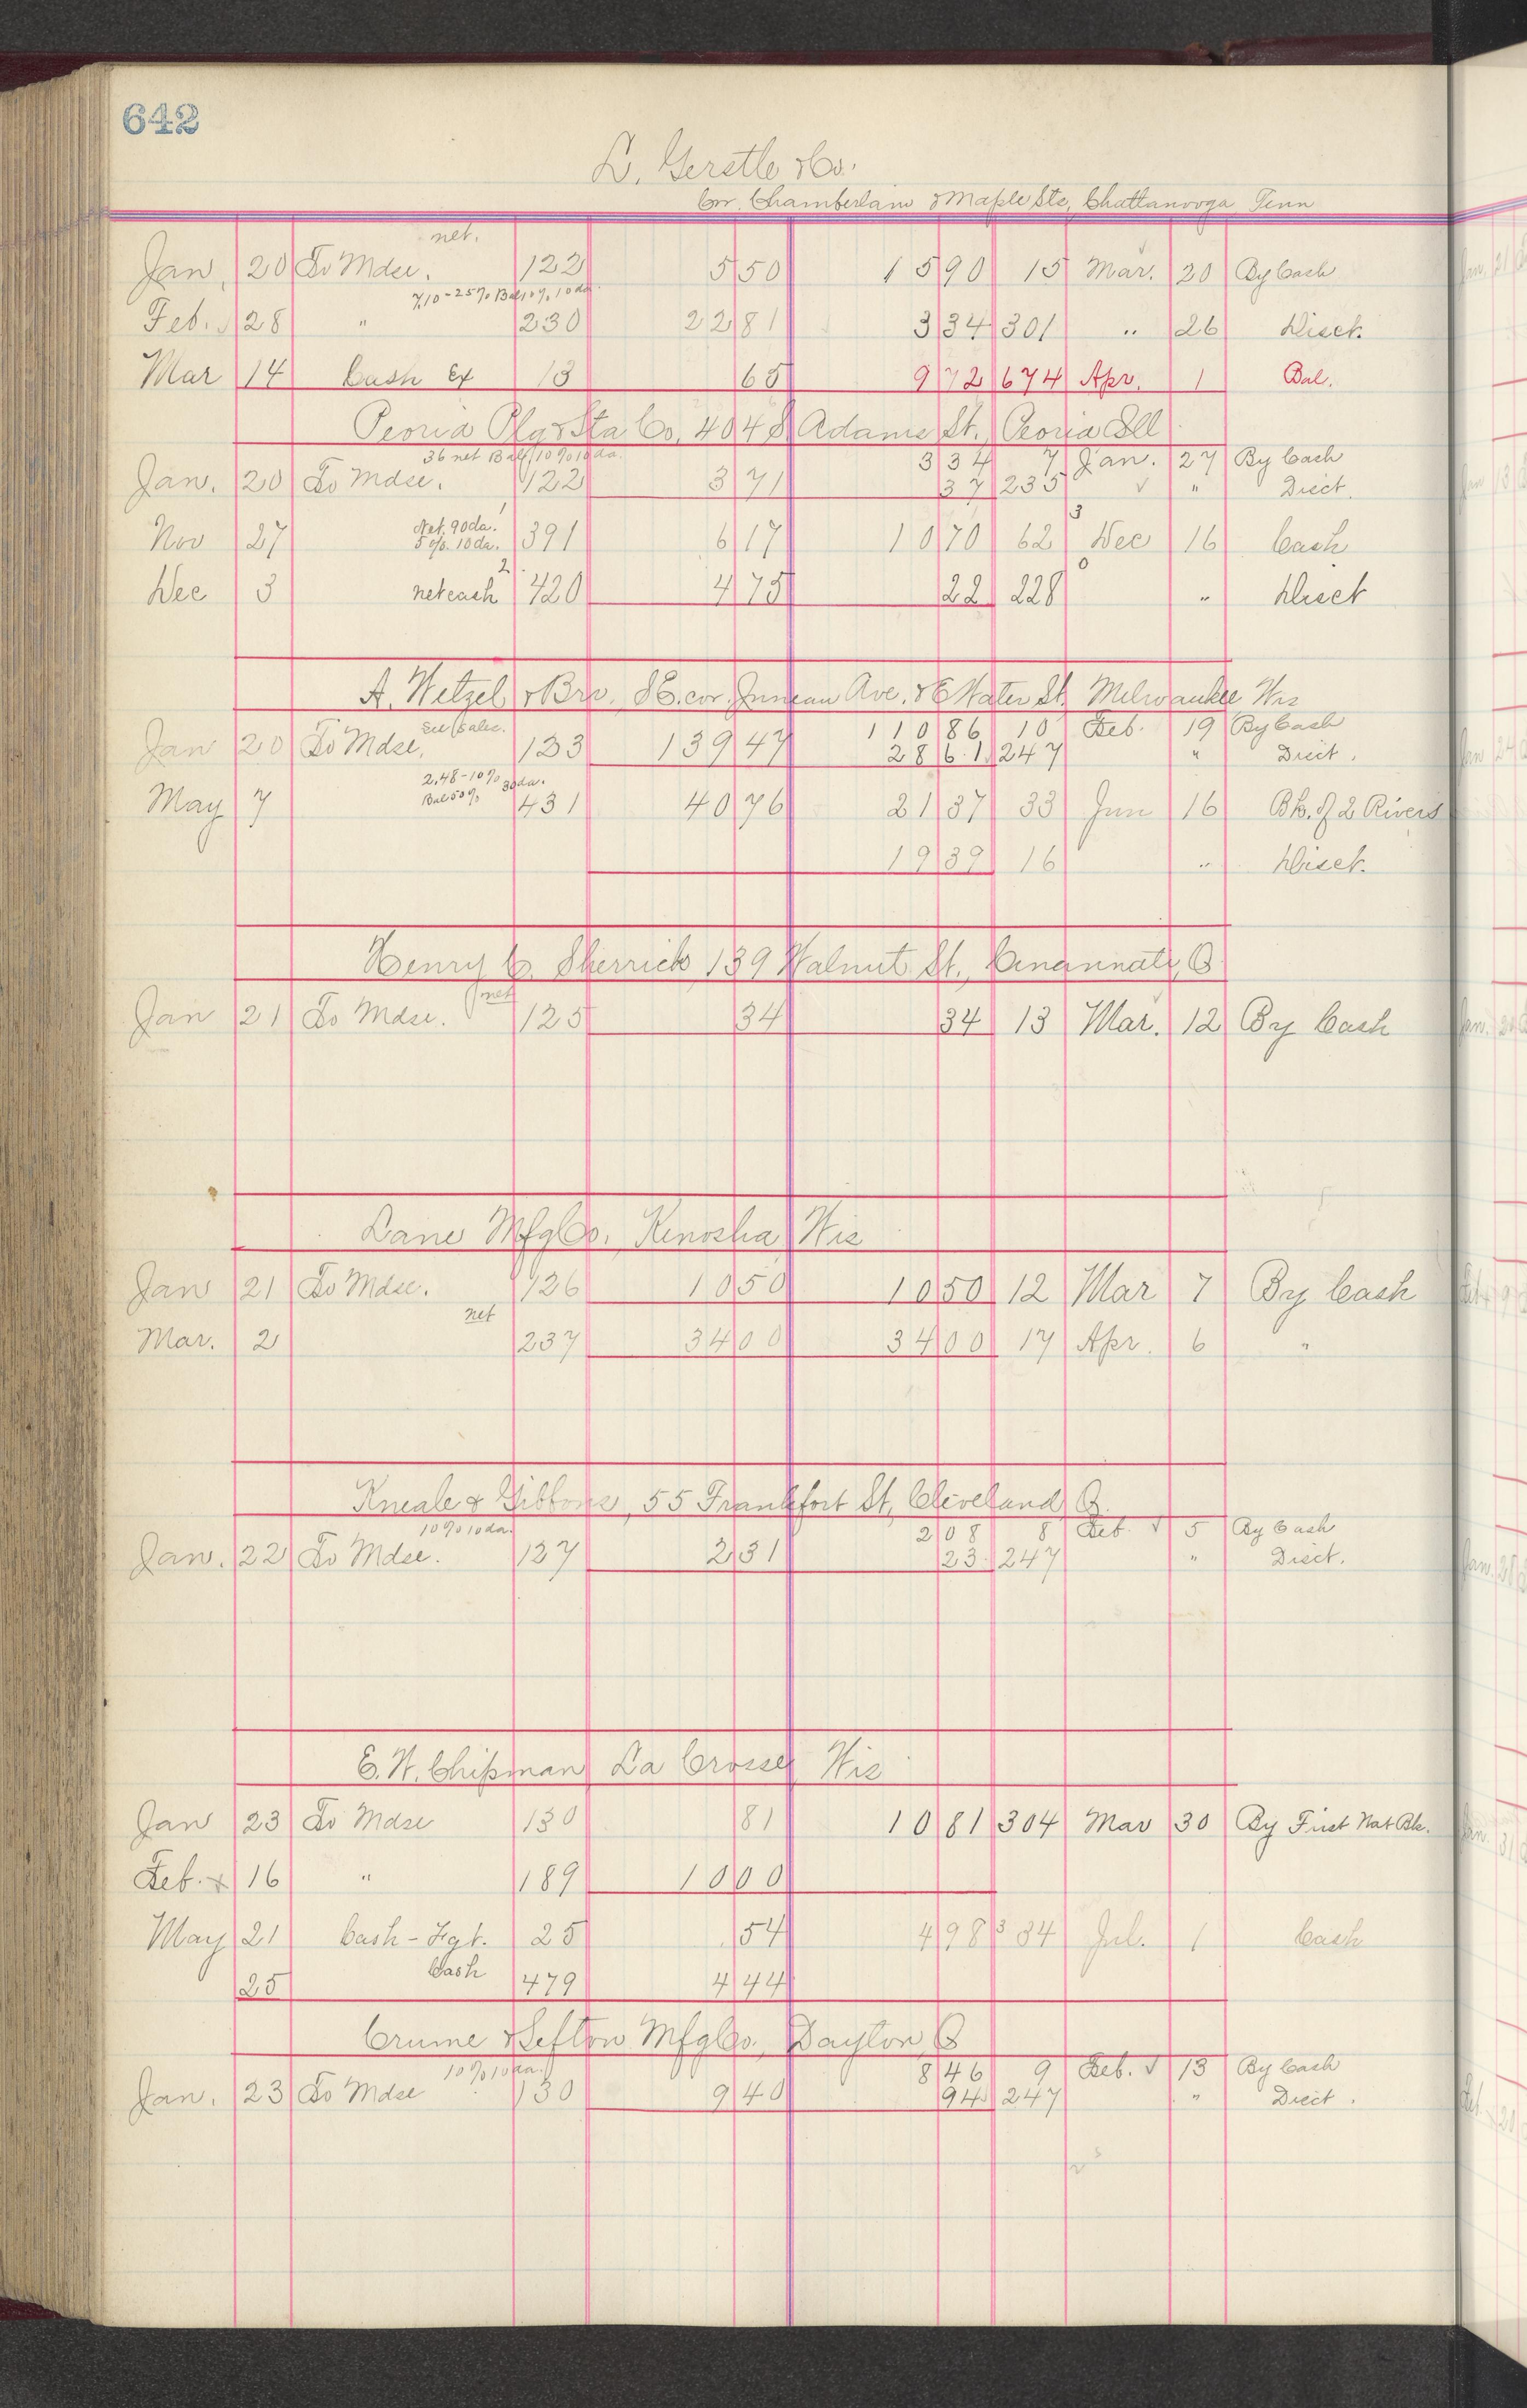 642
L. Gerstle & Co.
Cor. Chamberlain & Maple Sts, Chattanooga Tenn
net.
Jan. 20 To Mdse. 122 5 50 15 90 15 Mar. 20 By Cash
7.10-25% Bal 10% 10 da
Feb. 28 " 230 22 81 3 34 301 " 26 Disct.
Mar 14 Cash Ex 13 65 9 72 674 Apr. 1 Bal.
Peoria Plg & Sta Co, 404 S. Adams St., Peoria Ill
36 net Bal 10% 10 da. 3 34 7 Jan. 27 By Cash
Jan. 20 To Mdse. 122 3 71 37 235 " Disct.
Nov 27 Net. 90 da. 5%. 10 da. 391 6 17 10 70 62 Dec 16 Cash
Dec 3 net cash 420 4 75 22 228 " Disct
A. Wetzel & Bro. S E. cor. Juneau Ave. & E Water St. Milwaukee Wis
See Sales. 110 86 10 Feb. 19 By Cash
Jan 20 To Mdse. 133 139 47 28 61 247 " Disct.
2.48-10% 30 da.
Bal 50%
May 7 431 40 76 21 37 33 Jun 16 Bk. of 2 Rivers
19 39 16 " Disct.
Henry C. Sherrick 139 Walnut St., Cincinnati, O
net
Jan 21 To Mdse. 125 34 34 13 Mar. 12 By Cash
Lane Mfg Co., Kenosha Wis
Jan 21 To Mdse. 126 10 50 10 50 12 Mar 7 By Cash
net
Mar. 2 237 34 00 34 00 17 Apr. 6 "
Kneale & Gibbons, 55 Frankfort St, Cleveland, O.
10% 10 da. 2 08 8 Feb. 5 By Cash
Jan. 22 To Mdse. 127 2 31 23 247 " Disct.
E. W. Chipman La Crosse Wis
Jan 23 To Mdse 130 81 10 81 304 Mar 30 By First Nat Bk.
Feb. x 16 " 189 10 00
May 21 Cash - Fgt. 25 54 4 98 34 Jul. 1 Cash
25 Cash 479 4 44
Crume & Sefton Mfg Co., Dayton, O
10% 10 da. 8 46 9 Feb. 13 By Cash
Jan. 23 To Mdse 130 9 40 94 247 " Disct.